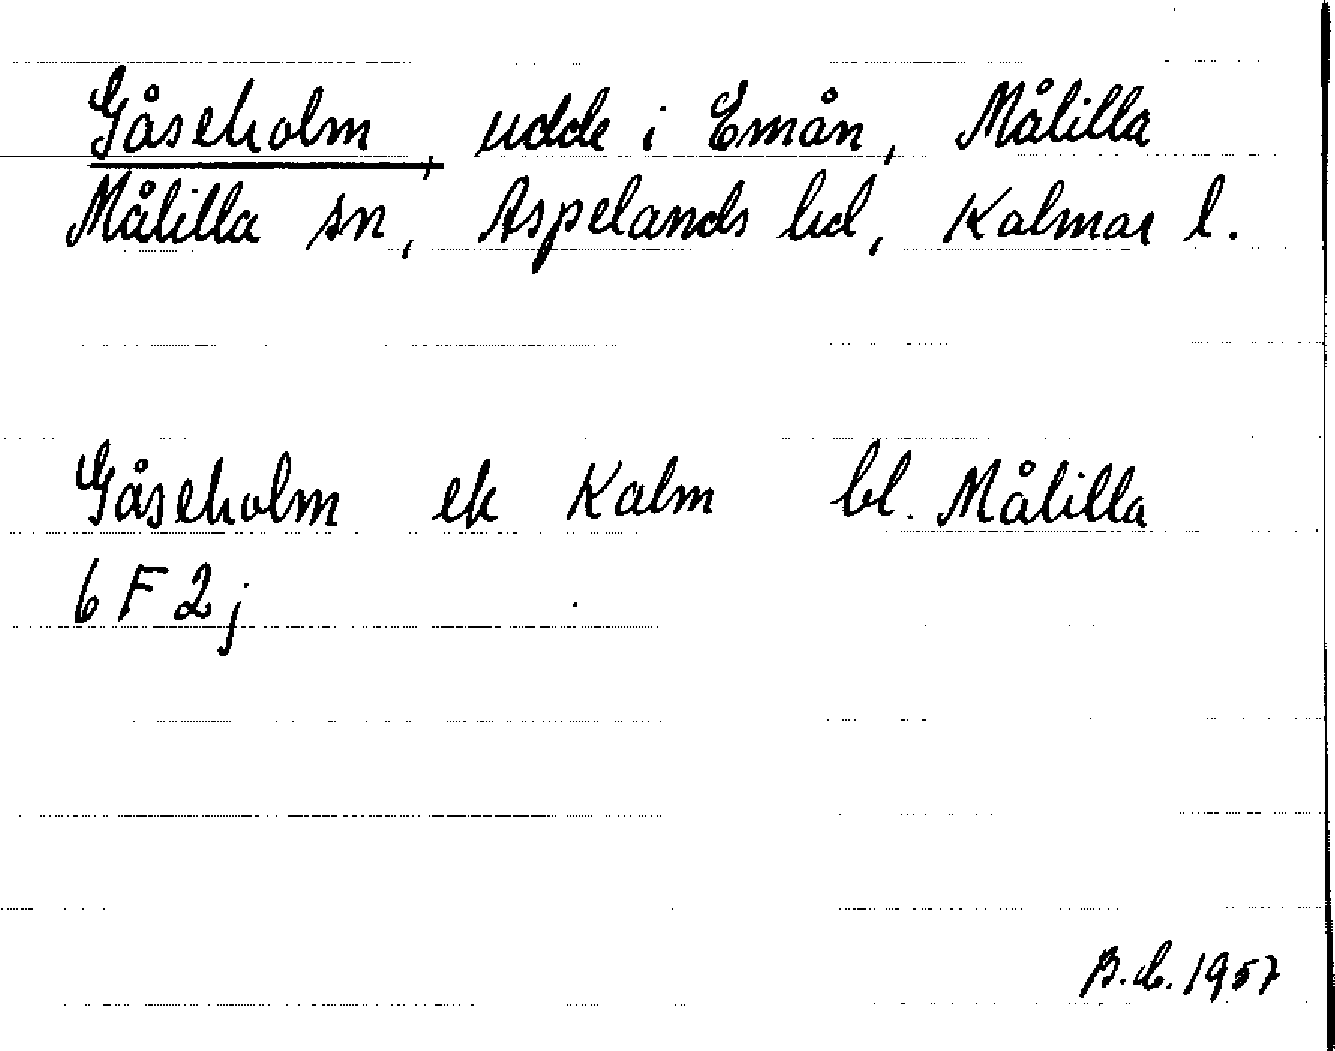 Gåseholm, udde i Emån, Målilla
Målilla sn, Aspelands hd, Kalmar l.
Gåseholm ek Kalm bl. Målilla
6 F 2 j
1957